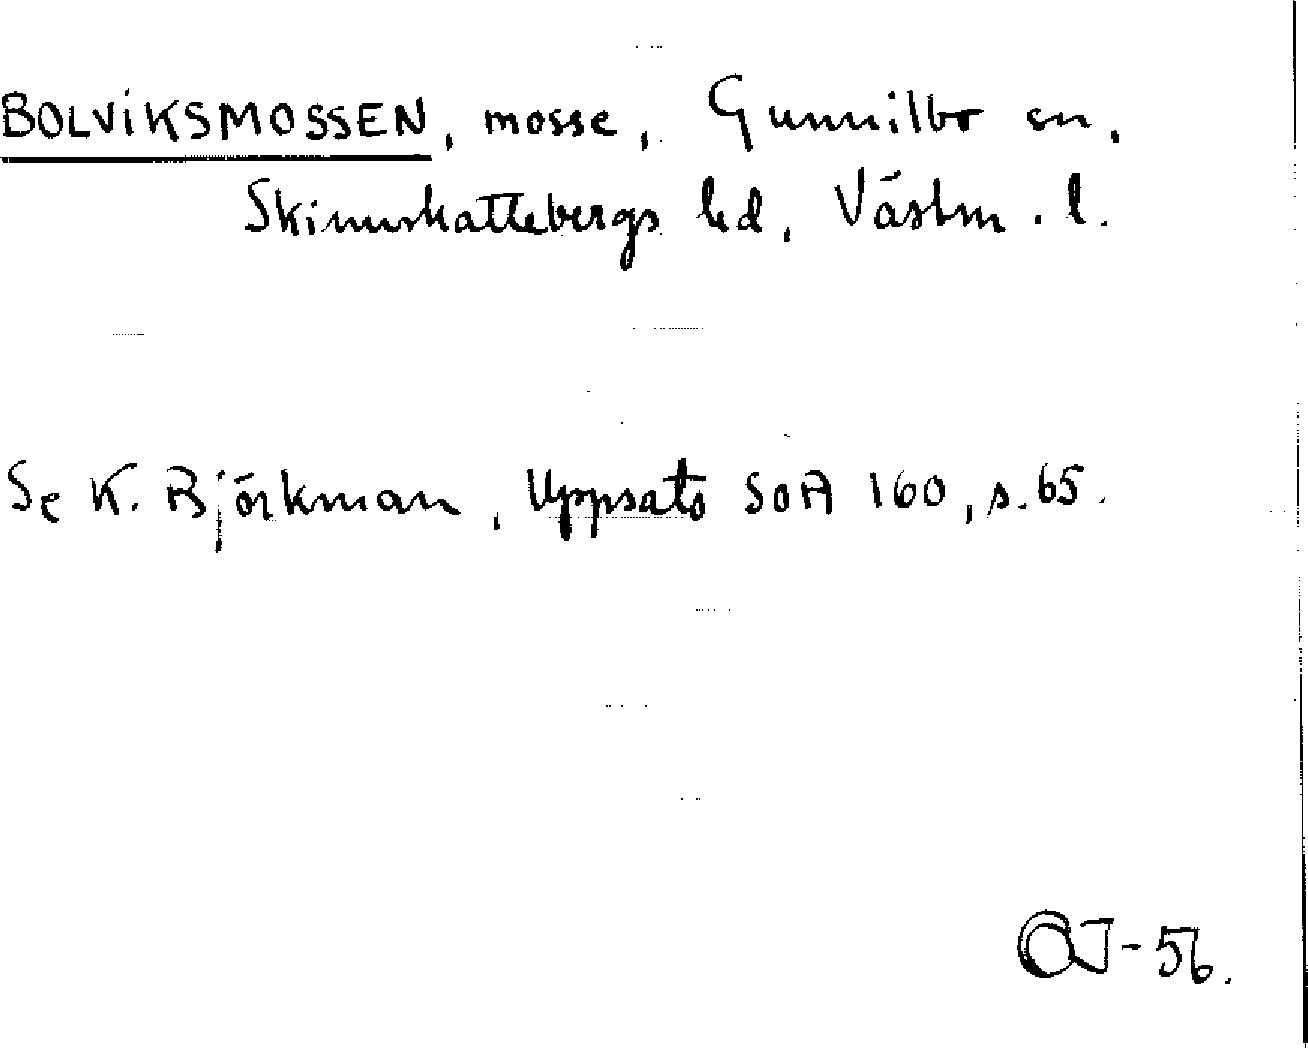 BOLVIKSMOSSEN, mosse, Gunnilbo sn,
Skinnskattebergs hd, Västm. l.
Se K. Björkman, Uppsats SOA 160, s. 65.
OJ-56.